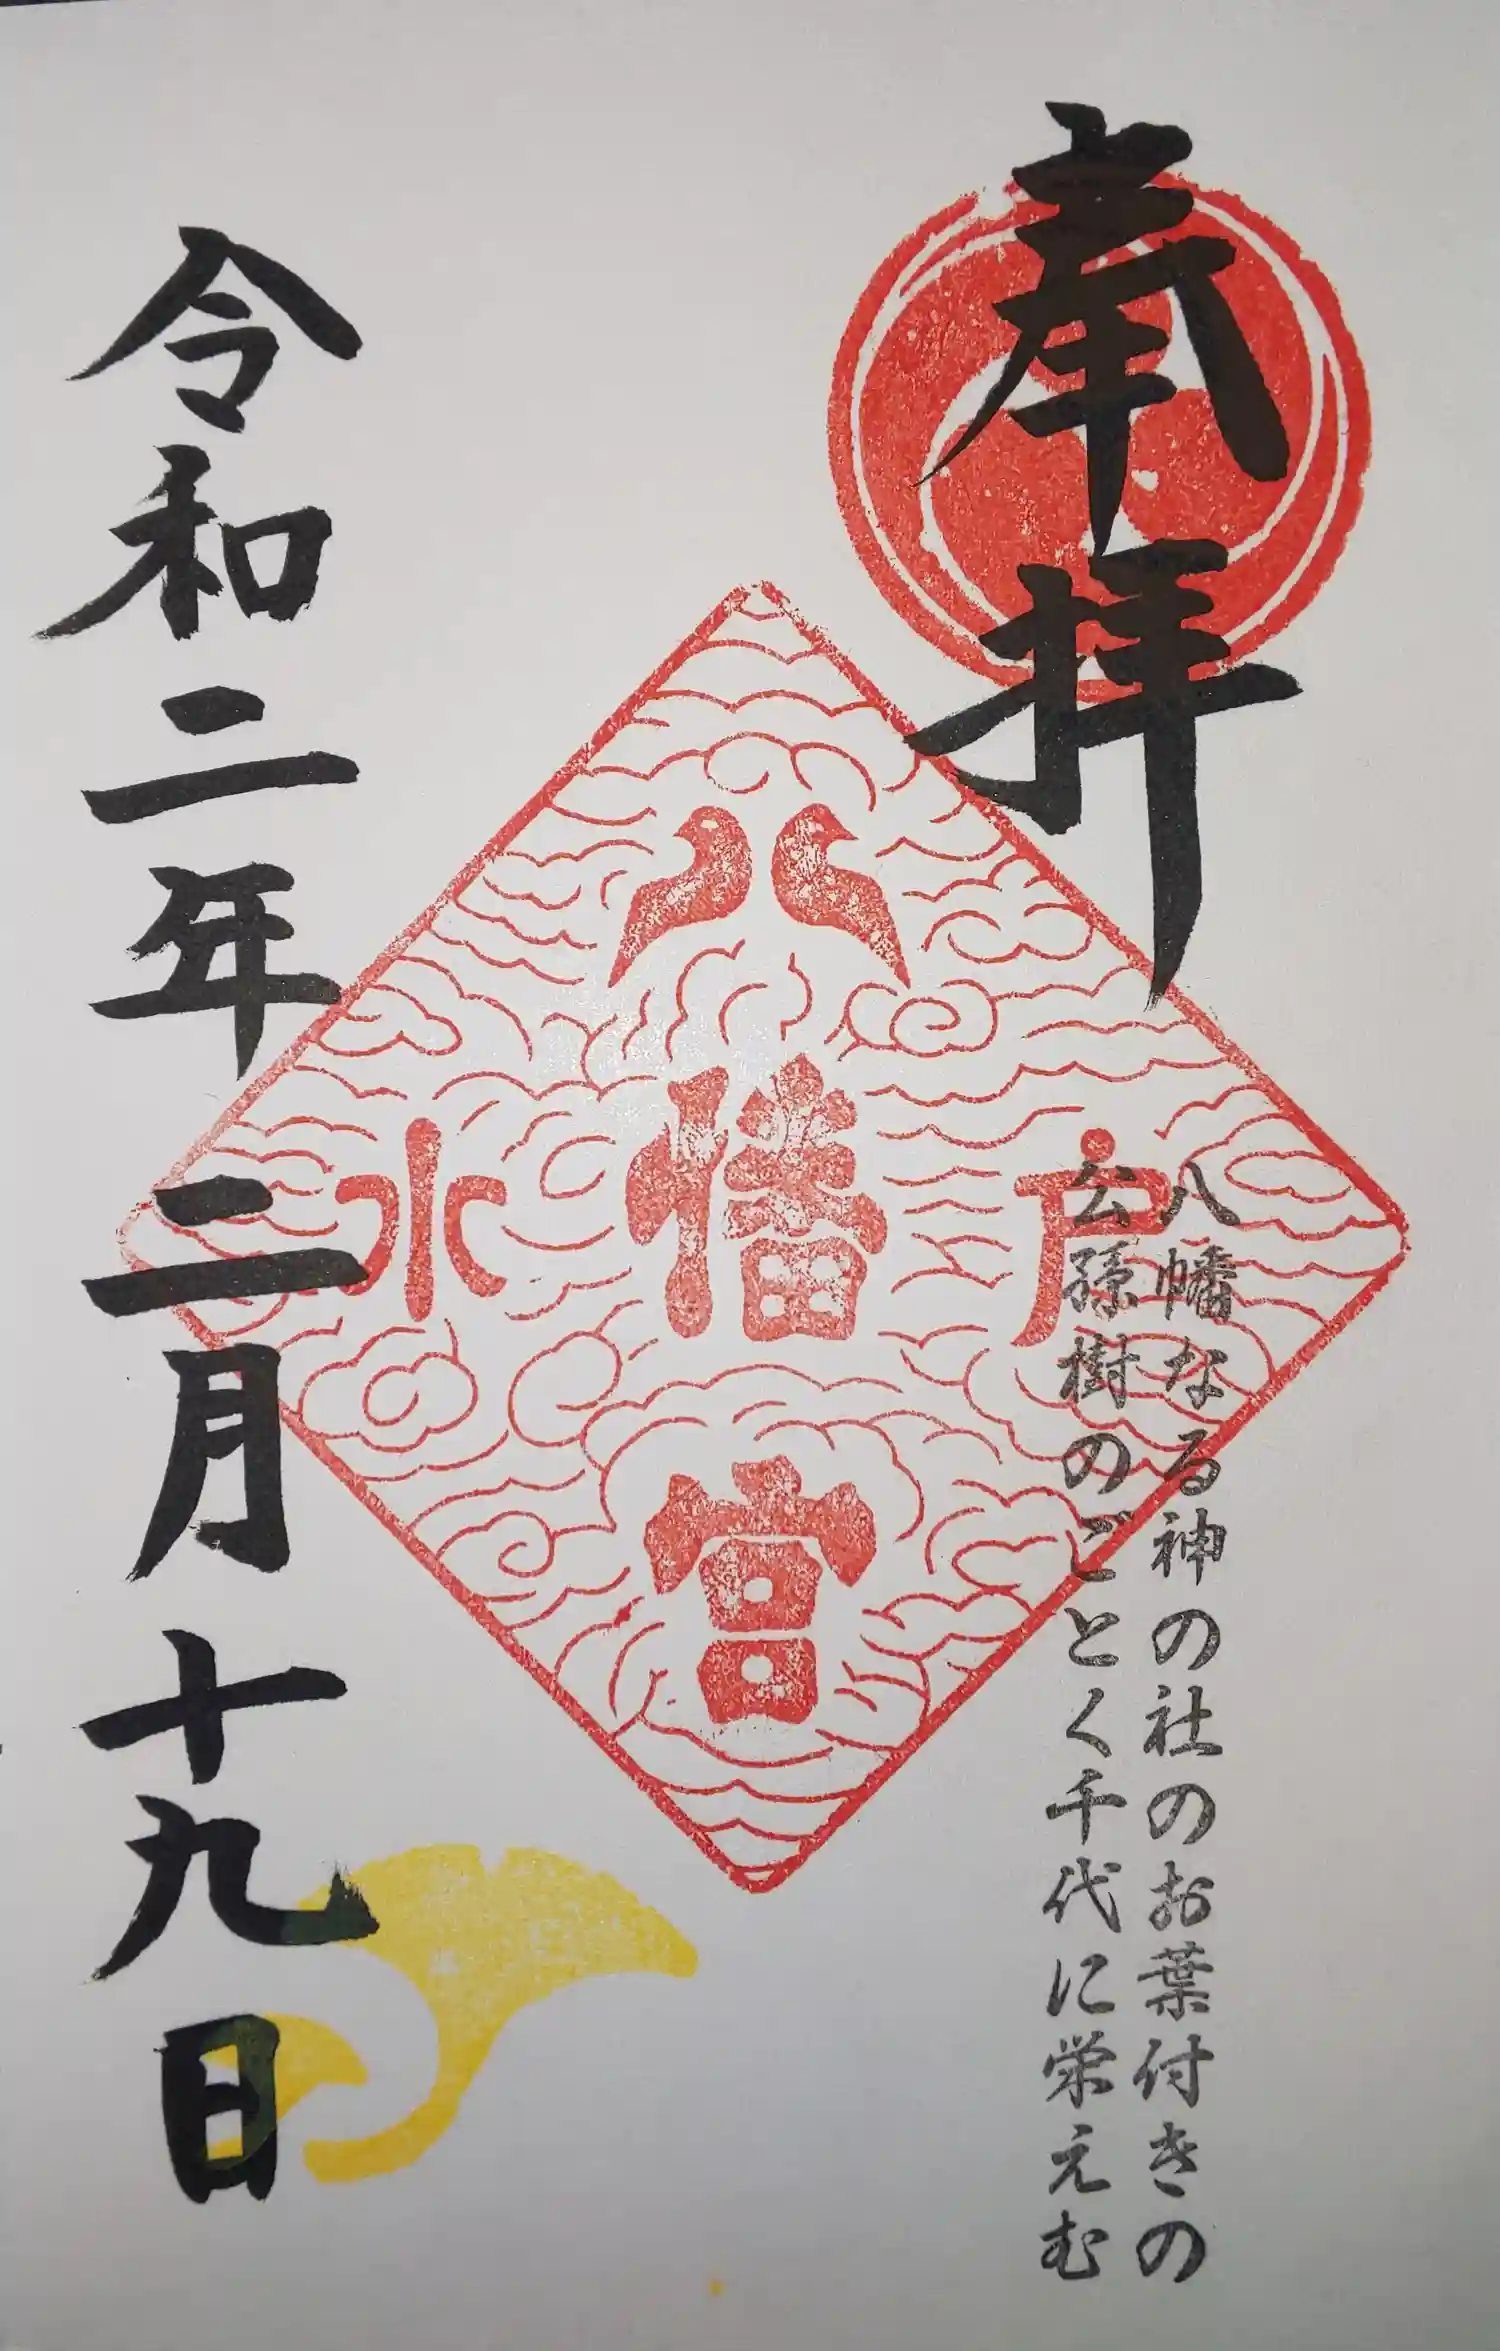 奉拝
八幡なる神の社のお葉付きの
公孫樹のごとく千代に栄えむ
八幡宮
水戸
令和二年二月十九日